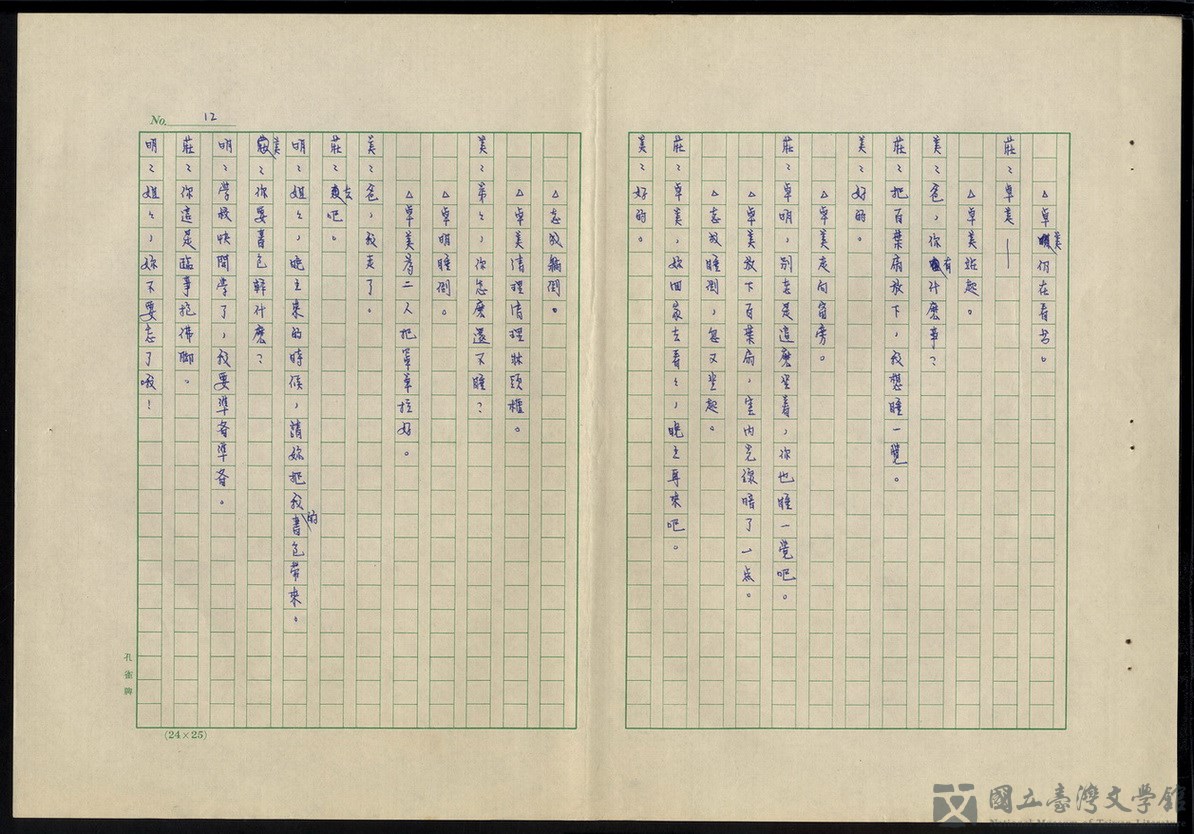 No. 12
△卓美仍在看書。
莊：卓美——
△卓美站起。
美：爸，你有什麼事？
莊：把百葉扇放下，我想睡一覺。
美：好的。
△卓美走向窗旁。
莊：卓明，別老是這麼坐著，你也睡一覺吧。
△卓美放下百葉扇，室內光線暗了一点。
△志放睡倒，忽又坐起。
莊：卓美，妳回家去看看，晚上再來吧。
美：好的。
△志放躺倒。
△卓美清理清理牀頭櫃。
美：弟弟，你怎麼還不睡？
△卓明睡倒。
△卓美為二人把罩單拉好。
美：爸，我走了。
莊：去吧。
明：姐姐，晚上來的時候，請妳把我的書包帶來。
美：你要書包幹什麼？
明：學校快開學了，我要準备準备。
莊：你這是臨事抱佛脚。
明：姐姐，妳不要忘了哦！
孔雀牌
(24×25)
國立臺灣文學館
National Museum of Taiwan Literature